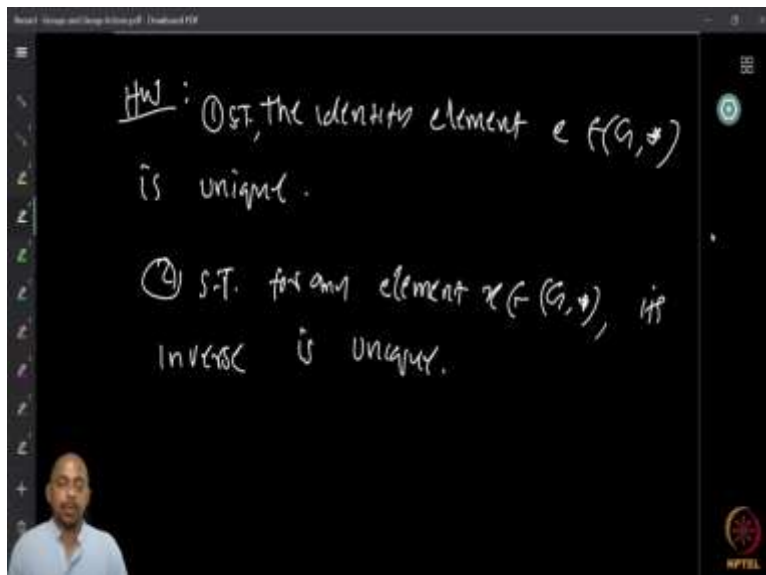 HW : ① S.T, The identity element e ∈ (G, *)
is unique.
② S.T. for any element x ∈ (G, *), its
inverse is unique.
NPTEL